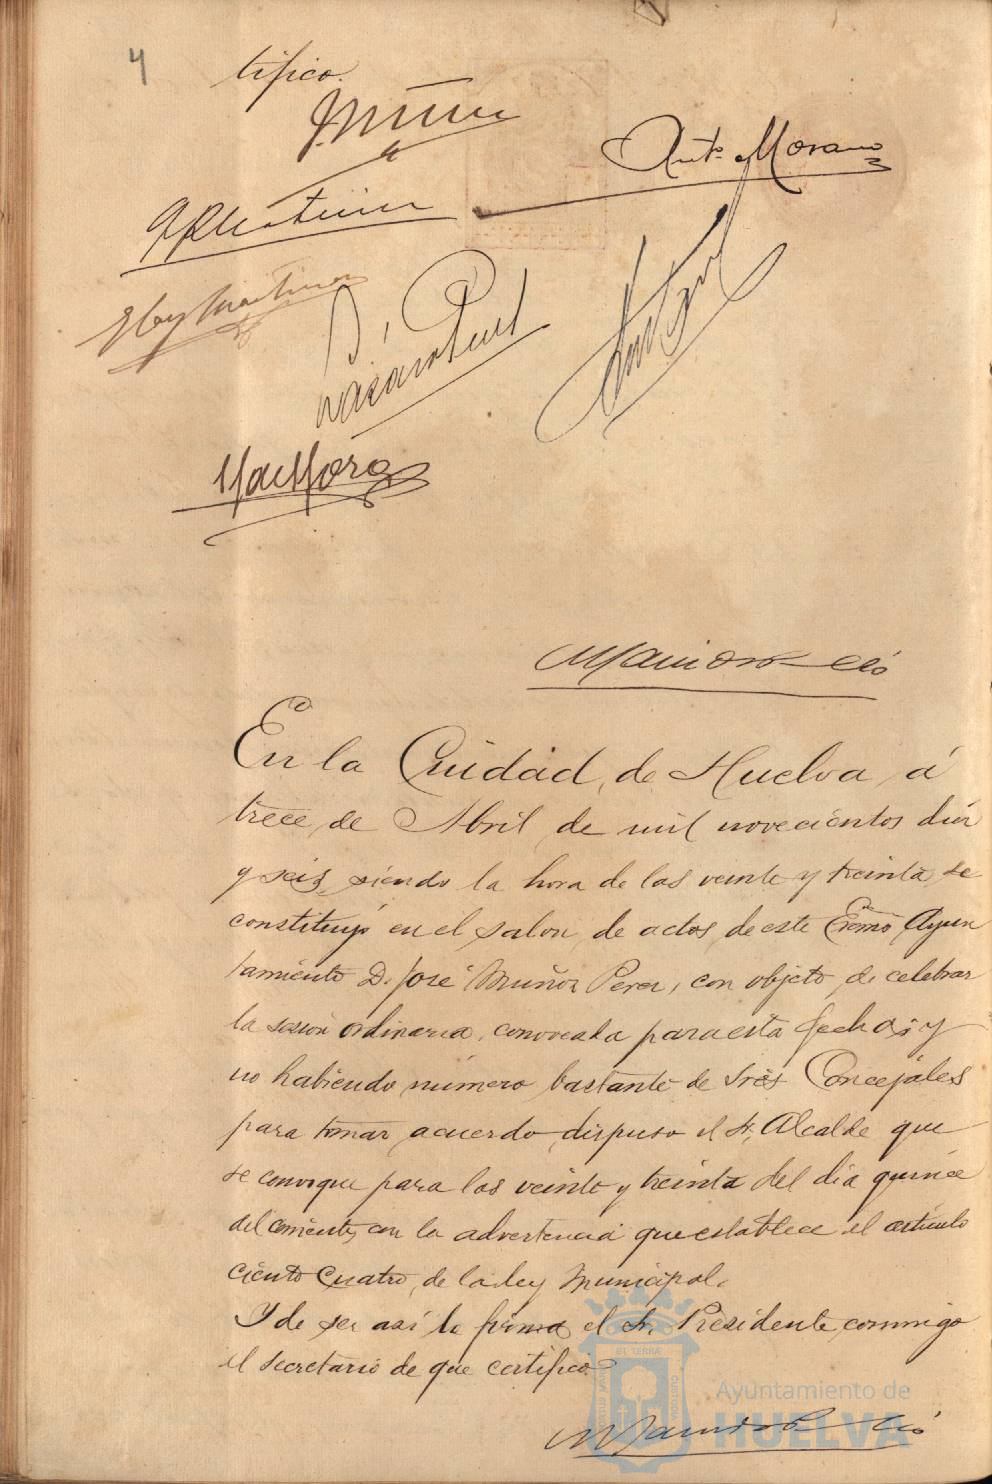 4
tifico.
J. Muñoz
Ant.º Morano
Eloy Martinez
H. de Mora
En la Ciudad, de Huelva, á
trece, de Abril de mil novecientos diez
y seis, siendo la hora de las veinte y treinta, se
constituyó en el salon de actos, de este Excmo Ayun
tamiento D. José Muñoz Perez, con objeto, de celebrar
la sesion ordinaria, convocada para esta fecha; y
no habiendo número bastante de Sres Concejales
para tomar acuerdo, dispuso el Sr. Alcalde que
se convoque para las veinte y treinta del dia quince
del corriente, con la advertencia que establece el artículo
ciento cuatro, de la ley Municipal.
Y de ser así lo firma el Sr. Presidente, conmigo
el secretario de que certifico.
Ayuntamiento de
HUELVA